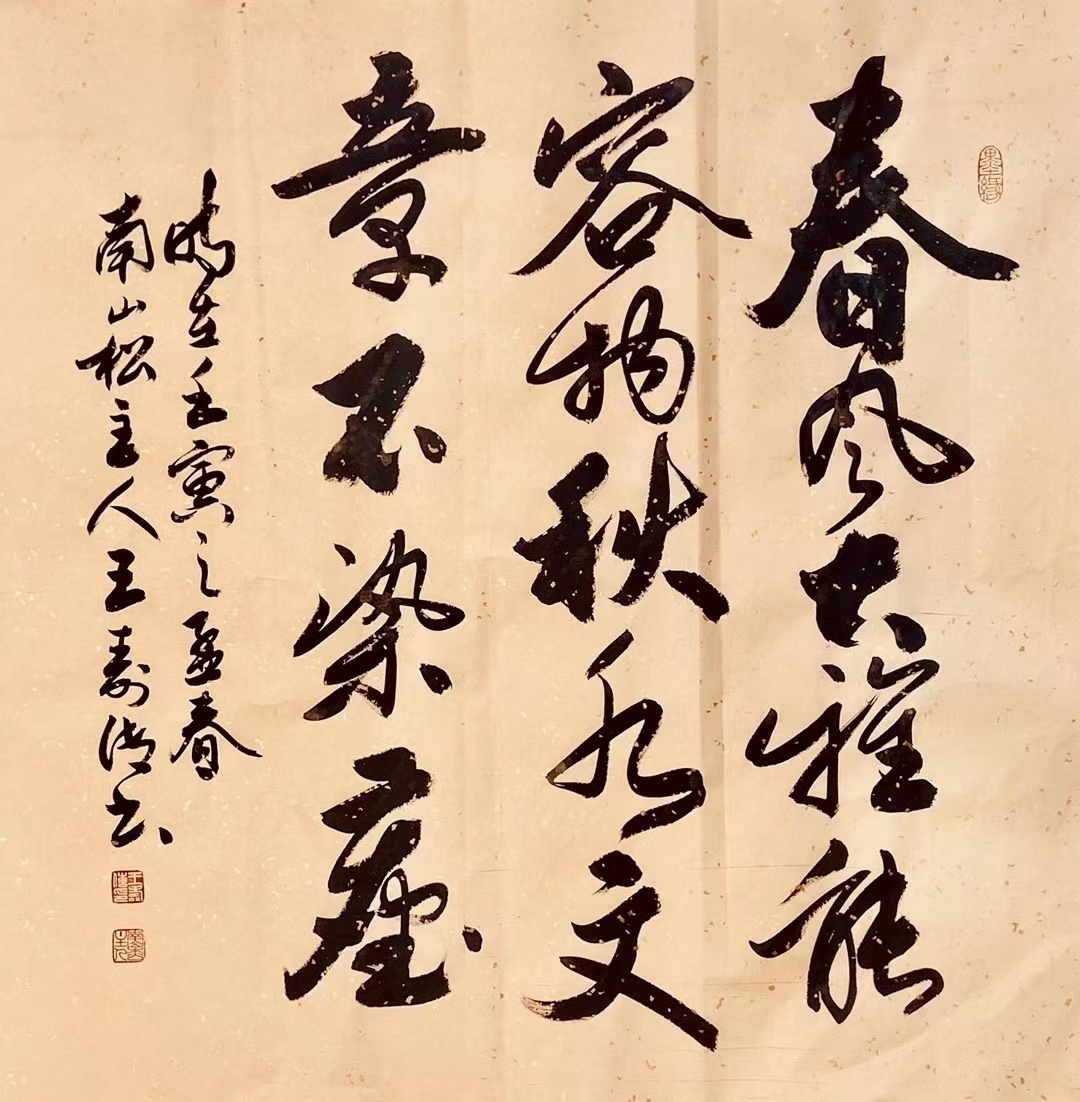 春风大雅能
容物秋水文
章不染塵
時在壬寅之孟春
南山松主人王寿书